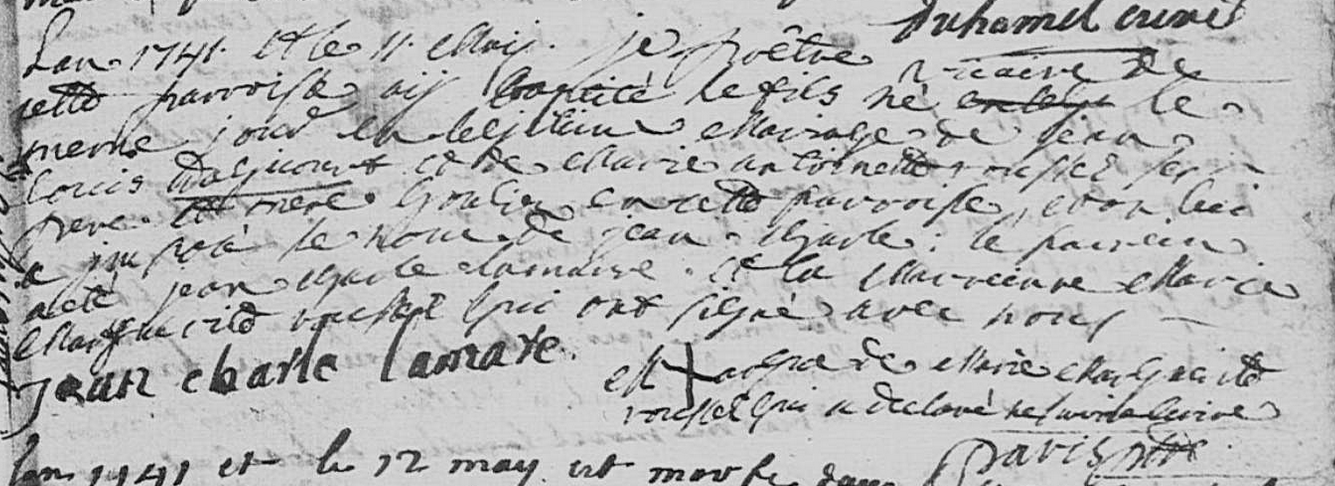 Duhamel curé
Lan 1741 et le 11 may je prêtre vicaire de
cette parroisse aij baptisé le fils né le
meme jour en legitime Mariage de jean
louis et de Marie antoinette rousel ses
pere et mere en cette parroisse, et on lui
a imposé le nom de jean charle. le parein
a eté jean charle lamare et la Mareinne Marie
Marguerite roussel qui ont signé avec nous
jean charle lamare
Marque de Marie Marguerite
roussel qui a declaré ne savoir ecrire
lan 1741 et le 12 may est morte dans